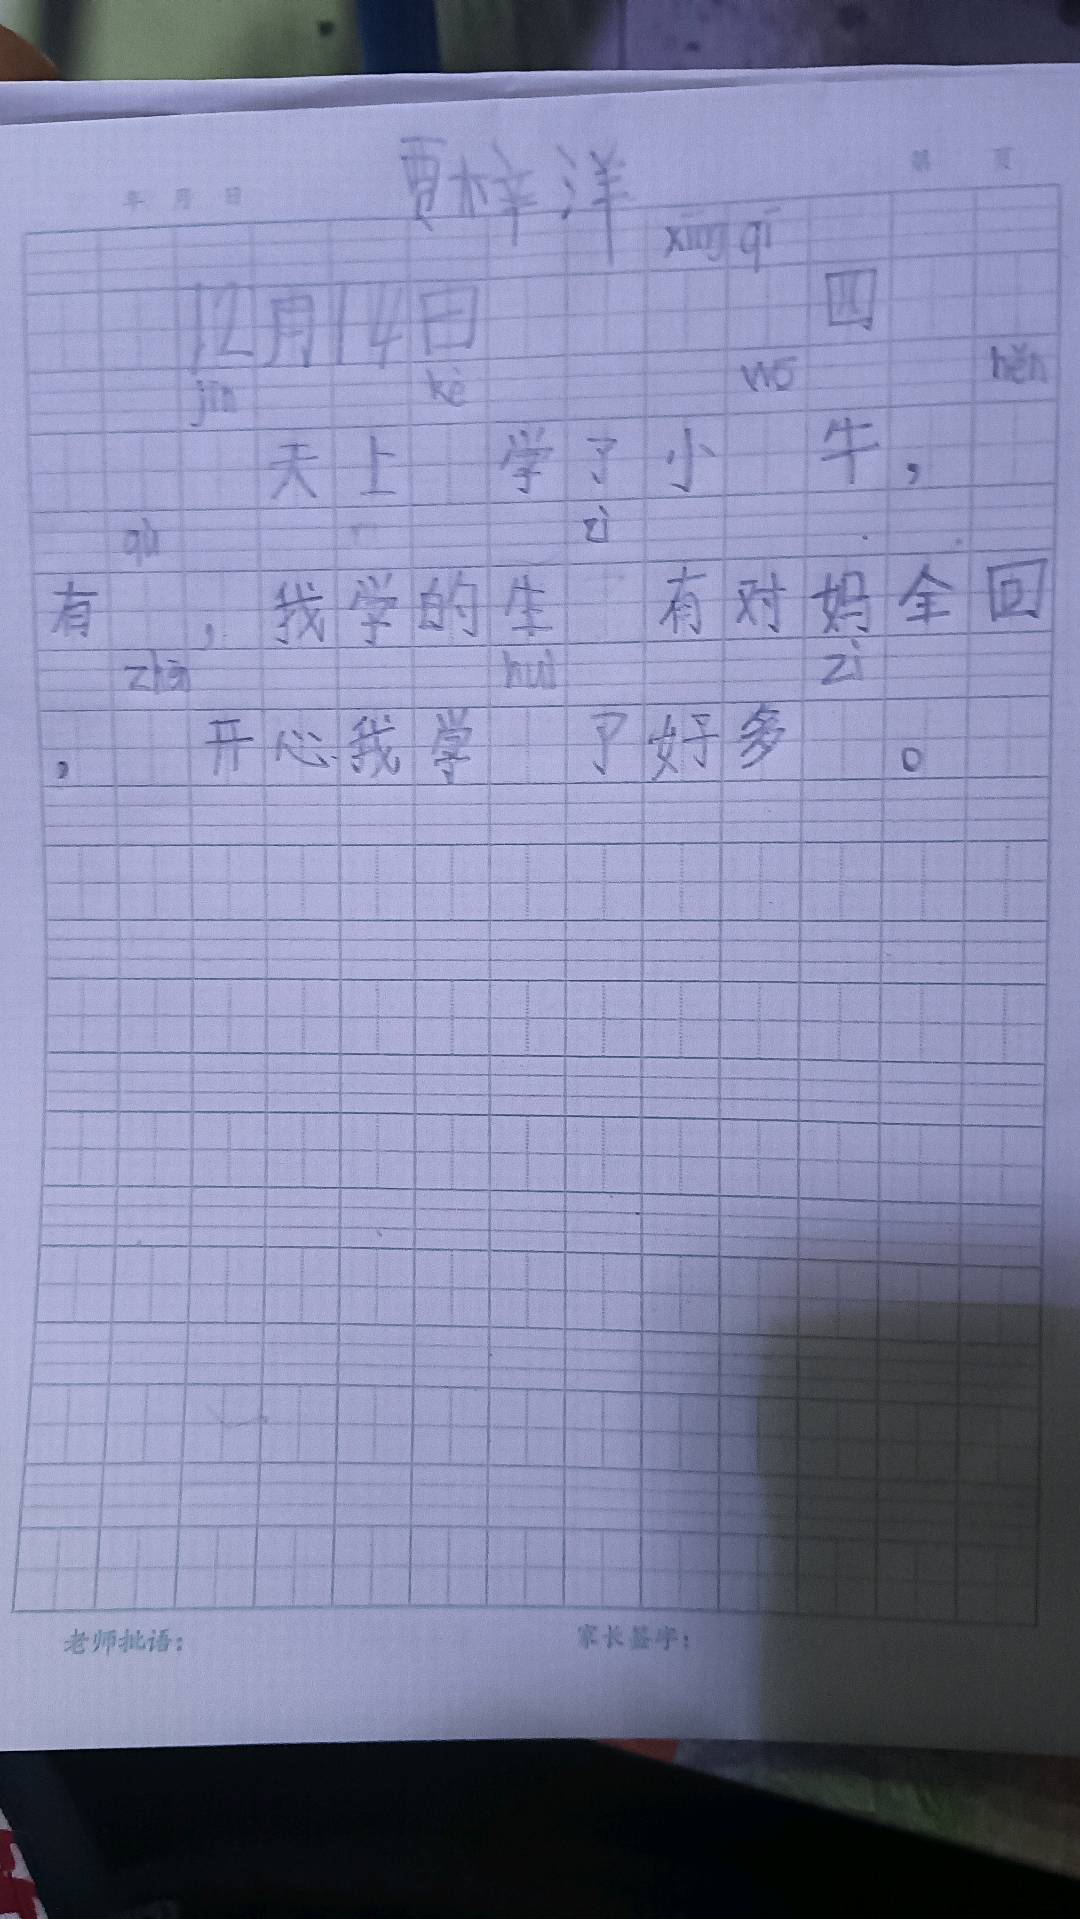 贾梓洋
年 月 日 第 页
xīng qī
12月14日 四
jīn kè wō hěn
天上 学了小 牛，
qù zì
有 ，我学的生 有对妈全回
zhēn huì zì
， 开心我学 了好多 。
老师批语： 家长签字：